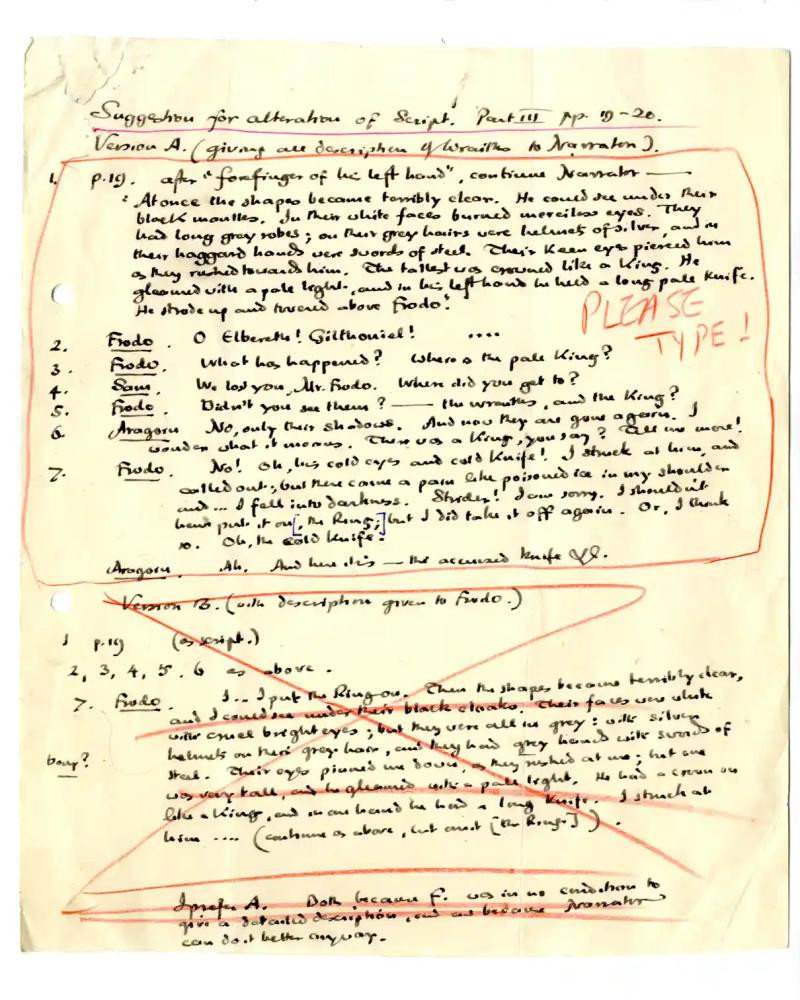 Suggestion for alteration of Script. Part III pp. 19-20.
Version A. (giving all description of Wraiths to Narrator).
1. p.19. after "forefinger of his left hand", continue Narrator —
"At once the shapes became terribly clear. He could see under their
black mantles. In their white faces burned merciless eyes. They
had long grey robes; on their grey hairs were helmets of silver, and in
their haggard hands were swords of steel. Their keen eyes pierced him
as they rushed towards him. The tallest was crowned like a King. He
gleamed with a pale light, and in his left hand he held a long pale knife.
He strode up and towered above Frodo".
PLEASE
TYPE!
2. Frodo. O Elbereth! Gilthoniel! ....
3. Frodo. What has happened? Where is the pale King?
4. Sam. We lost you, Mr. Frodo. Where did you get to?
5. Frodo. Didn't you see them? — the wraiths, and the King?
6. Aragorn No, only their shadows. And now they are gone again. I
wonder what it means. There was a King, you say? Tell me more!
7. Frodo. No! Oh, his cold eyes and cold knife! I struck at him, and
called out; but there came a pain like poisoned ice in my shoulder
and... I fell into darkness. Strider! I am sorry. I shouldn't
have put it on [, the Ring;] but I did take it off again. Or, I think
so. Oh, the cold knife!
Aragorn. Ah. And here it is — the accursed knife
Version B. (with description given to Frodo.)
1 p.19 (as script.)
2, 3, 4, 5. 6 as above.
7. Frodo. I... I put the Ring on. Then the shapes became terribly clear,
and I could see under their black cloaks. Their faces were white
with cruel bright eyes; but they were all in grey: with silver
helmets on their grey hair, and they had grey hands with swords of
bony?
steel. Their eyes pinned me down, as they rushed at me; but one
was very tall, and he gleamed with a pale light. He had a crown on
like a King, and in one hand he had a long knife. I struck at
him .... (continue as above, but omit [the Ring;]).
I prefer A. Both because F. was in no condition to
give a detailed description, and because Narrator
can do it better anyway.